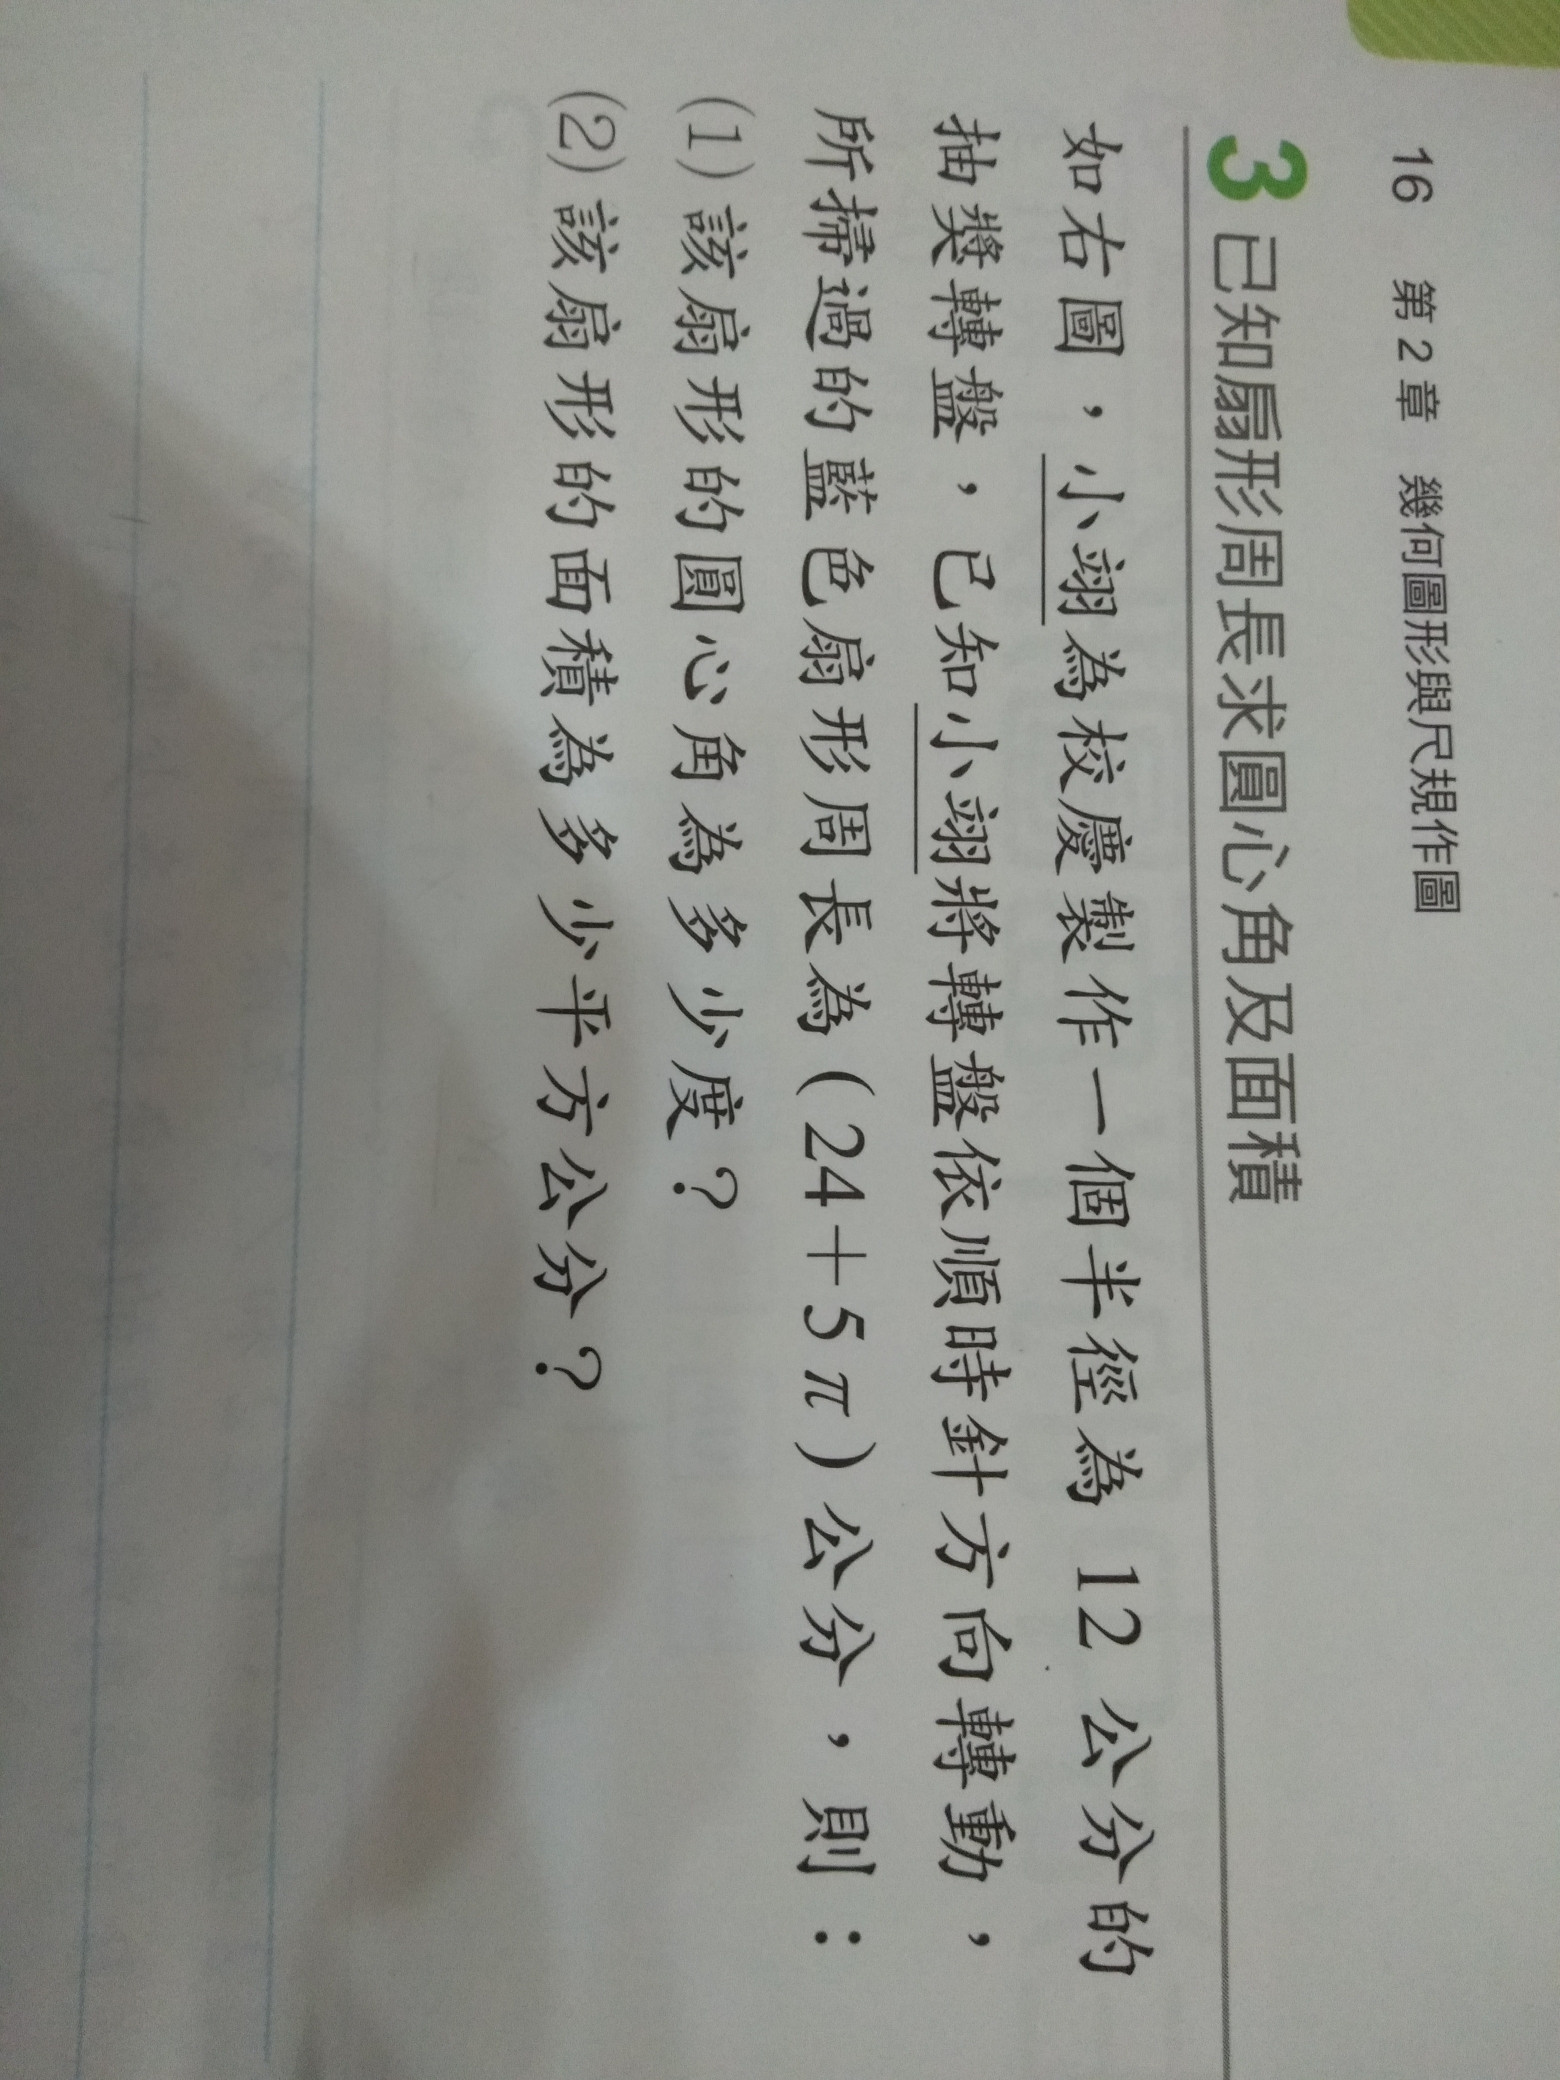 16 第 2 章 幾何圖形與尺規作圖
3 已知扇形周長求圓心角及面積
如右圖，小翊為校慶製作一個半徑為 12 公分的
抽獎轉盤，已知小翊將轉盤依順時針方向轉動，
所掃過的藍色扇形周長為(24+5π)公分，則：
(1)該扇形的圓心角為多少度？
(2)該扇形的面積為多少平方公分？